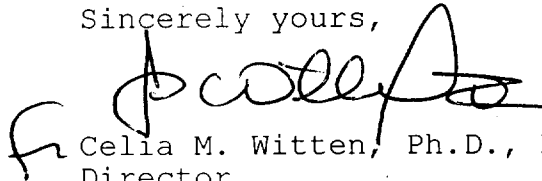 Sincerely yours,
Celia M. Witten, Ph.D.,
Director